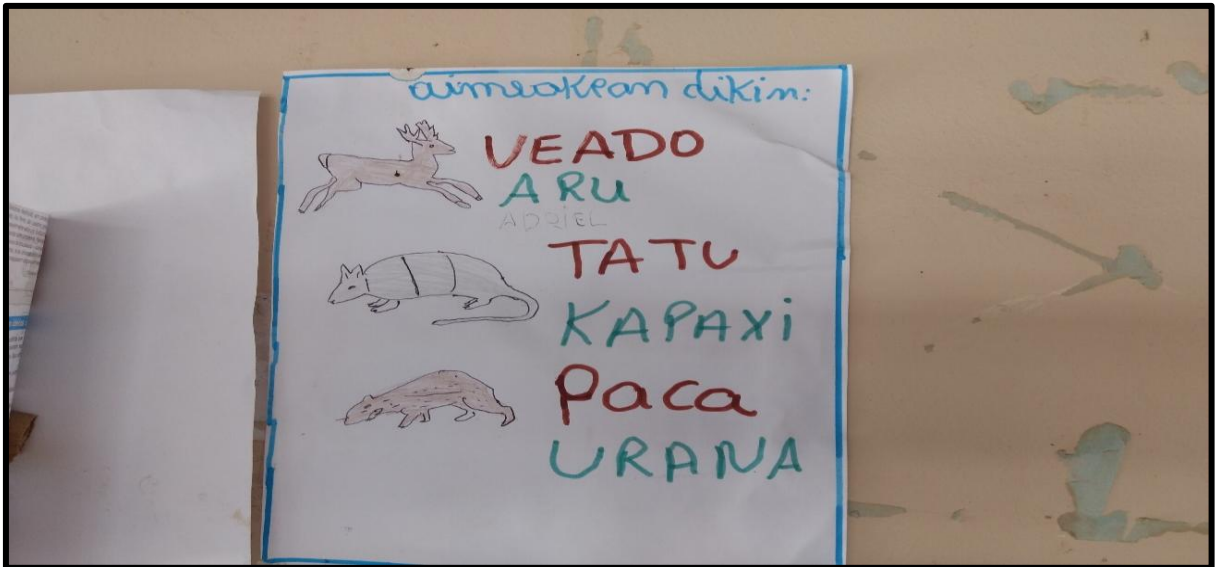 aimeakean dikin:
VEADO
ARU
ADRIEL
TATU
KAPAXi
Paca
URANA